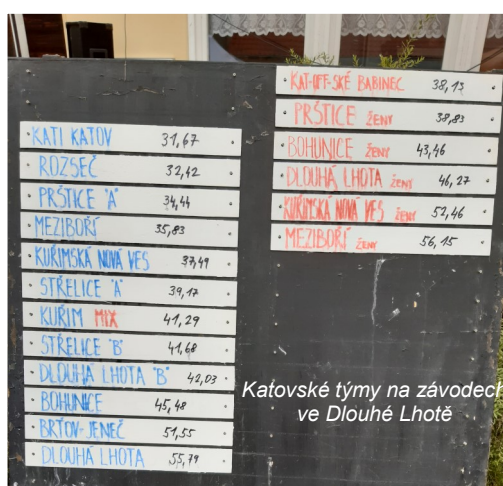 KATI KATOV 31,67
ROZSEČ 32,42
PRŠTICE 'A' 34,44
MEZIBOŘÍ 35,83
KUŘIMSKÁ NOVÁ VES 37,49
STŘELICE 'A' 39,17
KUŘIM MIX 41,29
STŘELICE 'B' 41,68
DLOUHÁ LHOTA 'B' 42,03
BOHUNICE 45,48
BRŤOV-JENEČ 51,55
DLOUHÁ LHOTA 55,79
KAT-OFF-SKÉ BABINEC 38,13
PRŠTICE ŽENY 38,83
BOHUNICE ŽENY 43,46
DLOUHÁ LHOTA ŽENY 46,27
KUŘIMSKÁ NOVÁ VES ŽENY 52,46
MEZIBOŘÍ ŽENY 56,15
Katovské týmy na závodech
ve Dlouhé Lhotě